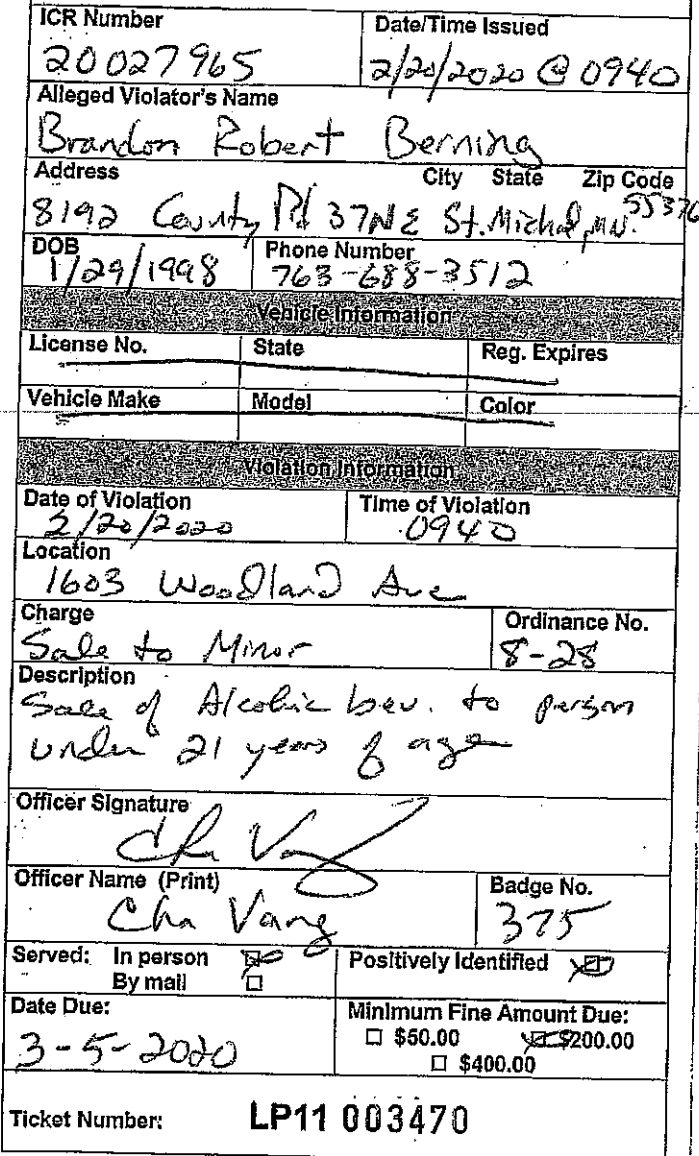 ICR Number Date/Time Issued
20027965 2/20/2020 @ 0940
Alleged Violator's Name
Brandon Robert Berning
Address City State Zip Code
8192 County Rd 37 NE St. Michal, MN. 55376
DOB Phone Number
1/29/1998 763-688-3512
Vehicle Information
License No. State Reg. Expires
Vehicle Make Model Color
Violation Information
Date of Violation Time of Violation
2/20/2020 0940
Location
1603 Woodland Ave
Charge Ordinance No.
Sale to Minor 8-28
Description
Sale of Alcohic bev. to person
under 21 years of age
Officer Signature
Cha Vang
Officer Name (Print) Badge No.
Cha Vang 375
Served: In person Positively Identified
By mail
Date Due: Minimum Fine Amount Due:
3-5-2020 $50.00 $200.00
$400.00
Ticket Number: LP11 003470